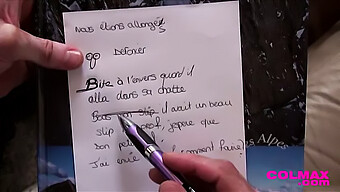 Nous étions allongés
Détoner
Bite à l'envers quand il
alla dans sa chatte
Pas un slip il avait un beau
slip
j'espère que
Bon
J'ai envie
(comment faire)
Alpes
COLMAX
.com